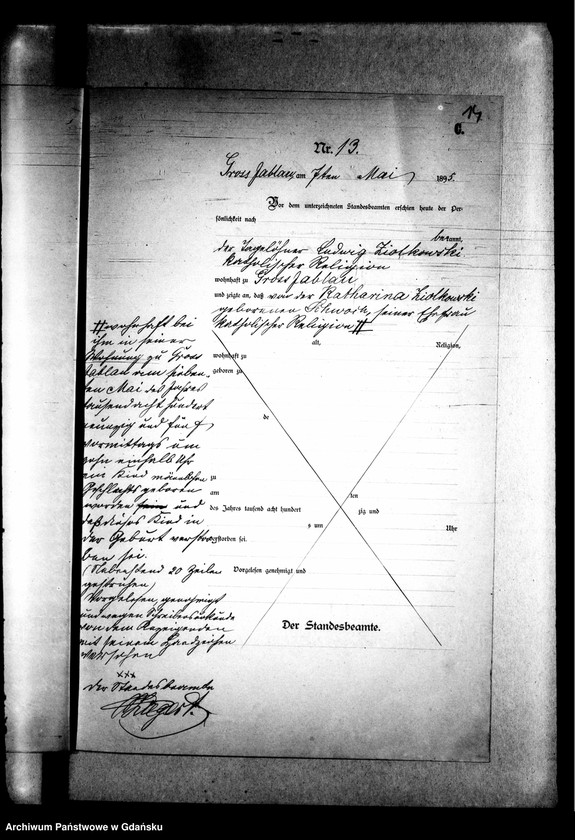 C.
Nr. 13.
Gross Jablau, am 7ten Mai 1895.
Vor dem unterzeichneten Standesbeamten erschien heute der Per-
sönlichkeit nach
bekannt,
der Tagelöhner Ludwig Ziolkowski
katholischer Religion
wohnhaft zu Gross Jablau
und zeigte an, daß von der Katharina Ziolkowski
geborenen Skwork, seiner Ehefrau
katholischer Religion #
alt, Religion,
wohnhaft zu
geboren zu
de
zu
am ten
des Jahres tausend acht hundert zig und
s um Uhr
gestorben sei.
Vorgelesen, genehmigt und
Der Standesbeamte.
# wohnhaft bei
ihm in seiner
Wohnung zu Gross
Jablau vom sieben-
ten Mai des Jahres
tausendacht hundert
neunzig und fünf
vormittags um
zehn einhalb Uhr
ein Kind männlichen
Geschlechts geboren
worden und
daß dieses Kind in
der Geburt verstor-
ben sei.
(Nebenstehend 20 Zeilen
gestrichen)
Vorgelesen, genehmigt
und wegen Schreibensunkunde
von dem Anzeigenden
mit seinem Handzeichen
versehen
xxx
Der Standesbeamte